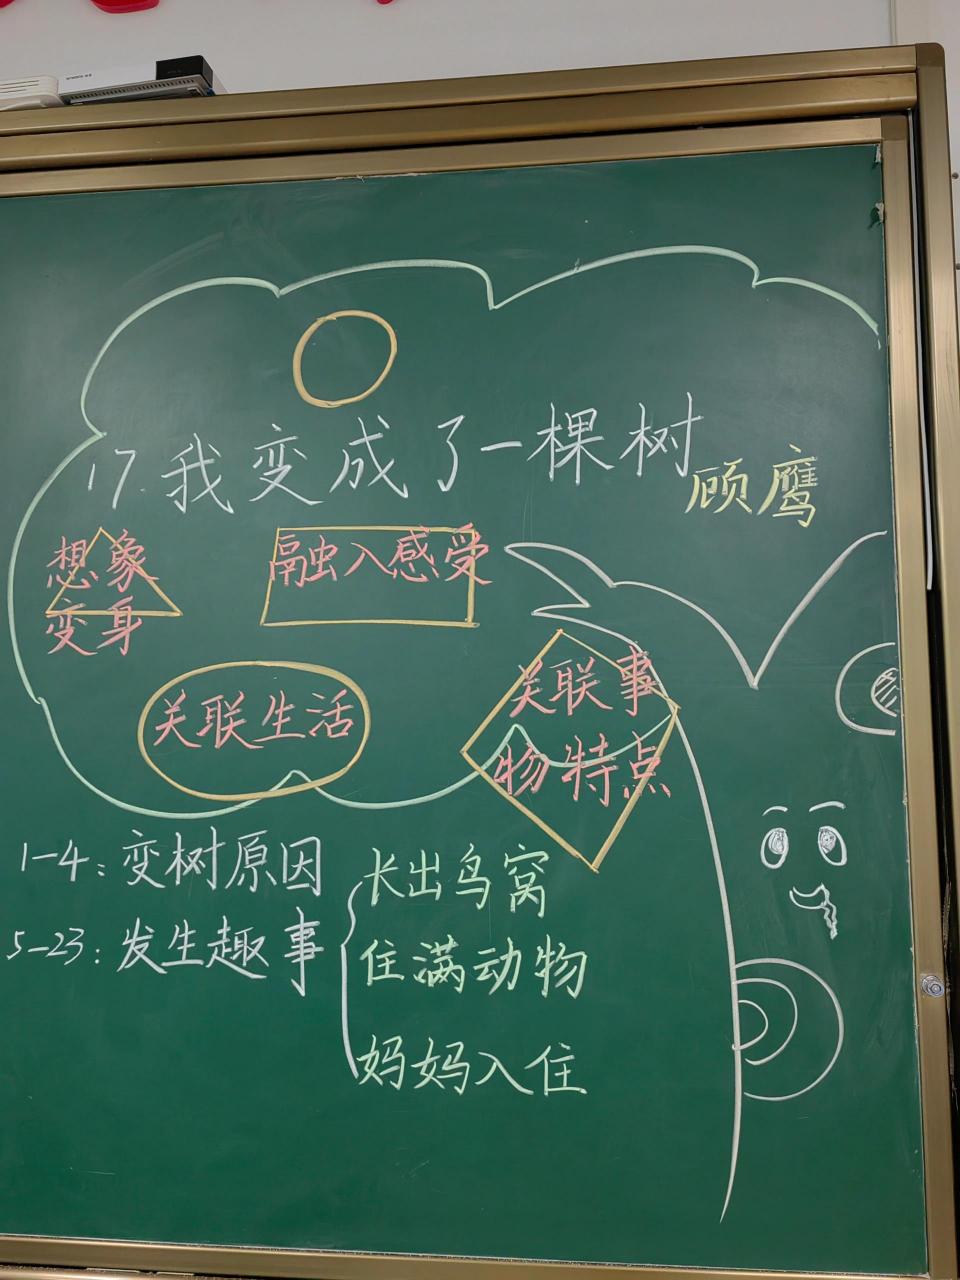 17.我变成了一棵树
顾鹰
想象
变身
融入感受
关联生活
关联事
物特点
1-4：变树原因
5-23：发生趣事
长出鸟窝
住满动物
妈妈入住